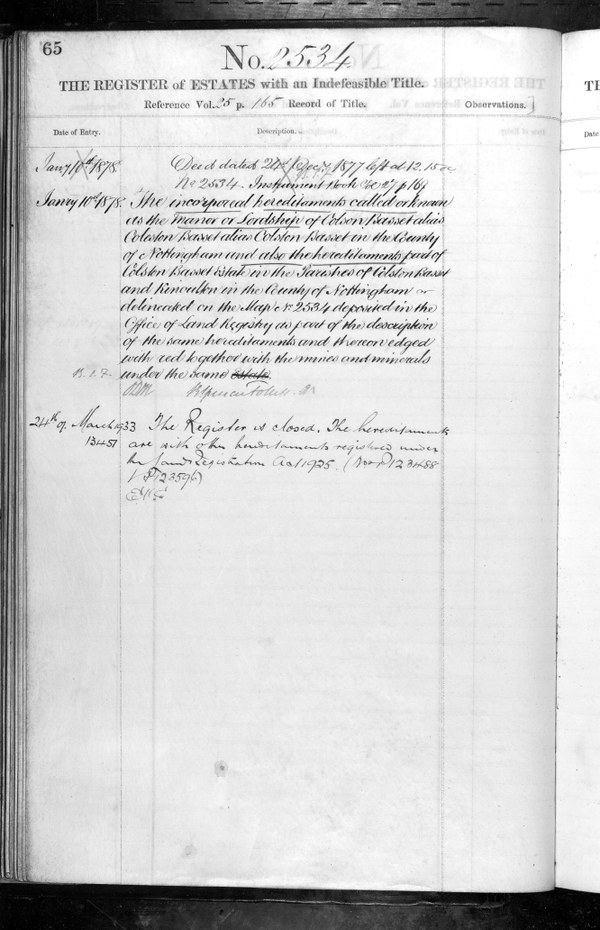 65
No. 2534
THE REGISTER of ESTATES with an Indefeasible Title.
Reference Vol. 25 p. 165 Record of Title.
Observations.
Date of Entry.
Description.
Jany 10th 1878
Deed dated 24th 1877 left at 12.15
No 2534. Instrument Book Vol 27 p 161
Janry 10th 1878.
The incorporeal hereditaments called or known
as the manor or Lordship of Colson Basset alias
Coleston Basset alias Colston Basset in the County
of Nottingham and also the hereditaments part of
Colston Basset Estate in the Parishes of Colston Basset
and Kinoulton in the County of Nottingham
delineated on the Map No 2534 deposited in the
Office of Land Registry as part of the description
of the same hereditaments and thereon edged
with red together with the mines and minerals
under the same estate
24th of March 1933
13457
The Register is closed. The hereditaments
are with other hereditaments registered under
the Land Registration Act 1925. (Nos P123488
& P123596)